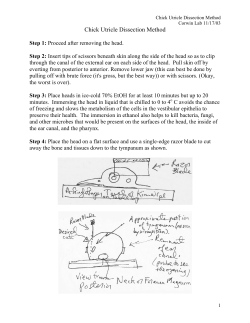 Chick Utricle Dissection Method
Corwin Lab 11/17/03
Chick Utricle Dissection Method
Step 1: Proceed after removing the head.
Step 2: Insert tips of scissors beneath skin along the side of the head so as to clip
through the canal of the external ear on each side of the head. Pull skin off by
everting from posterior to anterior. Remove lower jaw (this can best be done by
pulling off with brute force (it's gross, but the best way)) or with scissors. (Okay,
the worst is over).
Step 3: Place heads in ice-cold 70% EtOH for at least 10 minutes but up to 20
minutes. Immersing the head in liquid that is chilled to 0 to 4° C avoids the chance
of freezing and slows the metabolism of the cells in the vestibular epithelia to
preserve their health. The immersion in ethanol also helps to kill bacteria, fungi,
and other microbes that would be present on the surfaces of the head, the inside of
the ear canal, and the pharynx.
Step 4: Place the head on a flat surface and use a single-edge razor blade to cut
away the bone and tissues down to the tympanum as shown.
Razor
Blade
Razor Blade
Desired
cut
Approximate position
of tympanum
Remnant
of ear
canal
View from
Posterior
Neck or Foramen Magnum
1